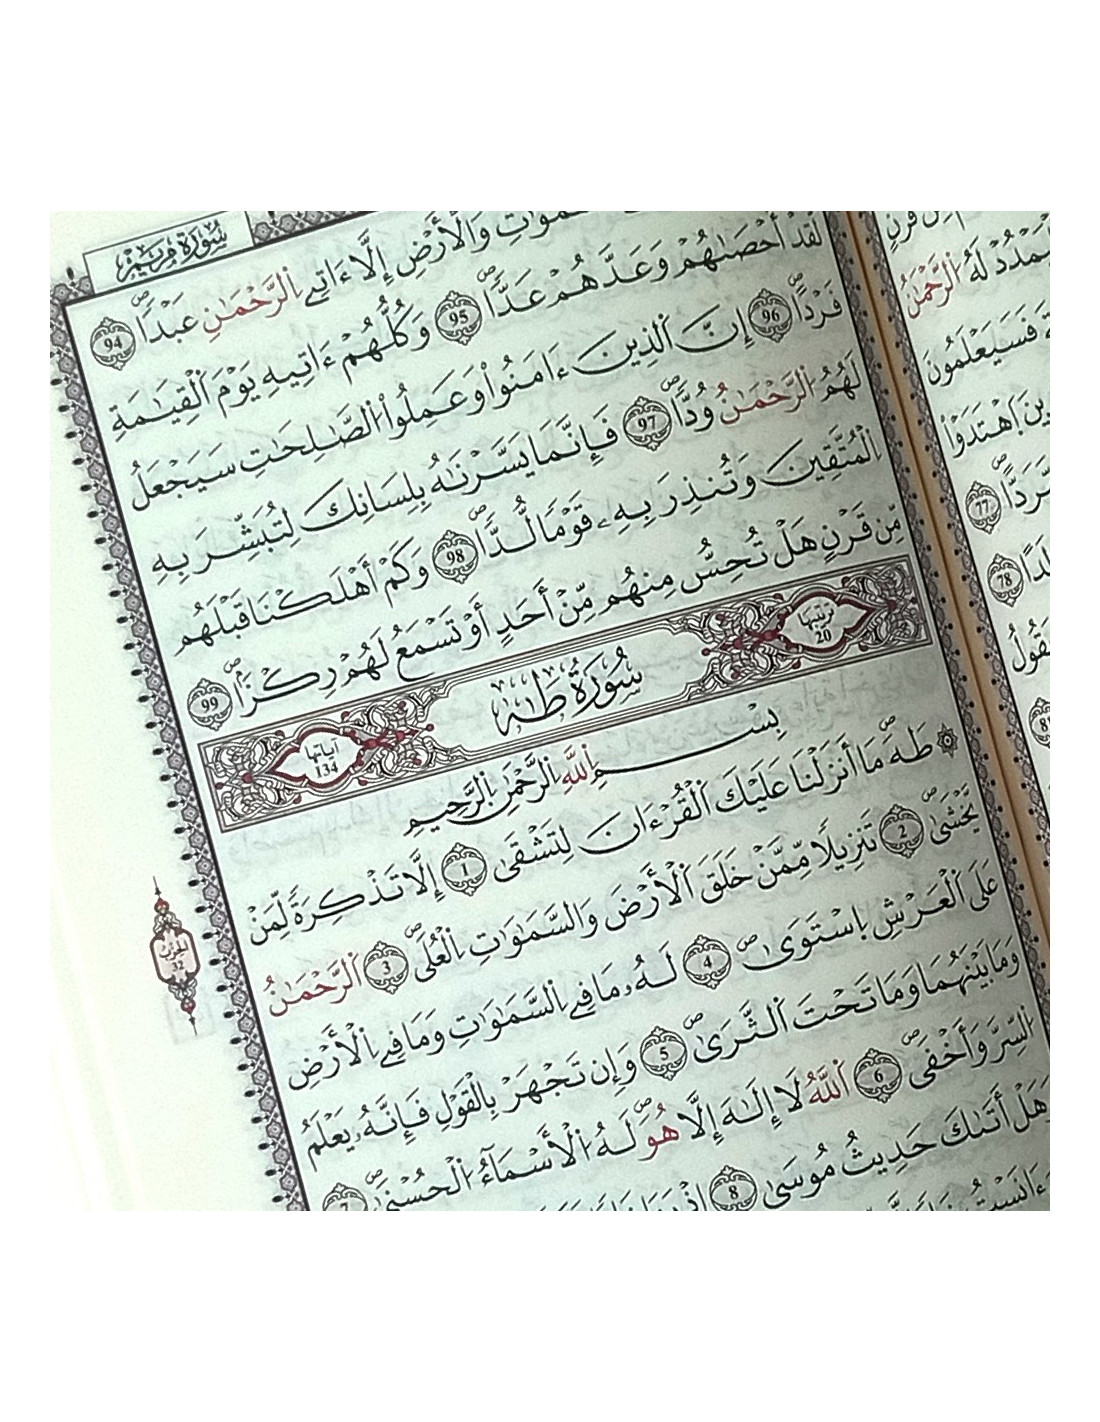 سُورَةُ مَرْيَمَ
وَالْأَرْضِ إِلَّا ءَاتِے اِ۬لرَّحْمَٰنِ عَبْداٗۖ 94
لَقَدْ أَحْصَىٰهُمْ وَعَدَّهُمْ عَدّاٗۖ 95 وَكُلُّهُمْ ءَاتِيهِ يَوْمَ اَ۬لْقِيَٰمَةِ
فَرْداًۖ 96 إِنَّ اَ۬لذِينَ ءَامَنُواْ وَعَمِلُواْ اُ۬لصَّٰلِحَٰتِ سَيَجْعَلُ
لَهُمُ اُ۬لرَّحْمَٰنُ وُدّاٗۖ 97 فَإِنَّمَا يَسَّرْنَٰهُ بِلِسَانِكَ لِتُبَشِّرَ بِهِ
اِ۬لْمُتَّقِينَ وَتُنذِرَ بِهِۦ قَوْماٗ لُّدّاٗۖ 98 وَكَمْ أَهْلَكْنَا قَبْلَهُم
مِّن قَرْنٍ هَلْ تُحِسُّ مِنْهُم مِّنْ أَحَدٍ أَوْ تَسْمَعُ لَهُمْ رِكْزاًۖ 99
تَرْتِيبُهَا 20 سُورَةُ طَهَ آيَاتُهَا 134
بِسْمِ اِ۬للَّهِ اِ۬لرَّحْمَٰنِ اِ۬لرَّحِيمِ
طَهَۖ مَا أَنزَلْنَا عَلَيْكَ اَ۬لْقُرْءَانَ لِتَشْقَىٰٓ 1 إِلَّا تَذْكِرَةٗ لِّمَنْ
يَّخْشَىٰۖ 2 تَنزِيلاٗ مِّمَّنْ خَلَقَ اَ۬لْأَرْضَ وَالسَّمَٰوَٰتِ اِ۬لْعُلَىۖ 3 اَ۬لرَّحْمَٰنُ
عَلَى اَ۬لْعَرْشِ اِ۪سْتَوَىٰۖ 4 لَهُۥ مَا فِے اِ۬لسَّمَٰوَٰتِ وَمَا فِے اِ۬لْأَرْضِ
وَمَا بَيْنَهُمَا وَمَا تَحْتَ اَ۬لثَّرَىٰۖ 5 وَإِن تَجْهَرْ بِالْقَوْلِ فَإِنَّهُۥ يَعْلَمُ
اُ۬لسِّرَّ وَأَخْفَىۖ 6 اَ۬للَّهُ لَا إِلَٰهَ إِلَّا هُوَۖ لَهُ اُ۬لْأَسْمَآءُ اُ۬لْحُسْنَىٰۖ 7
وَهَلْ أَتَىٰكَ حَدِيثُ مُوسَىٰٓ 8
الحزب
32
يَمْدُدْ لَهُ اُ۬لرَّحْمَٰنُ
فَسَيَعْلَمُونَ
اَ۪هْتَدَوْاْ
77
78